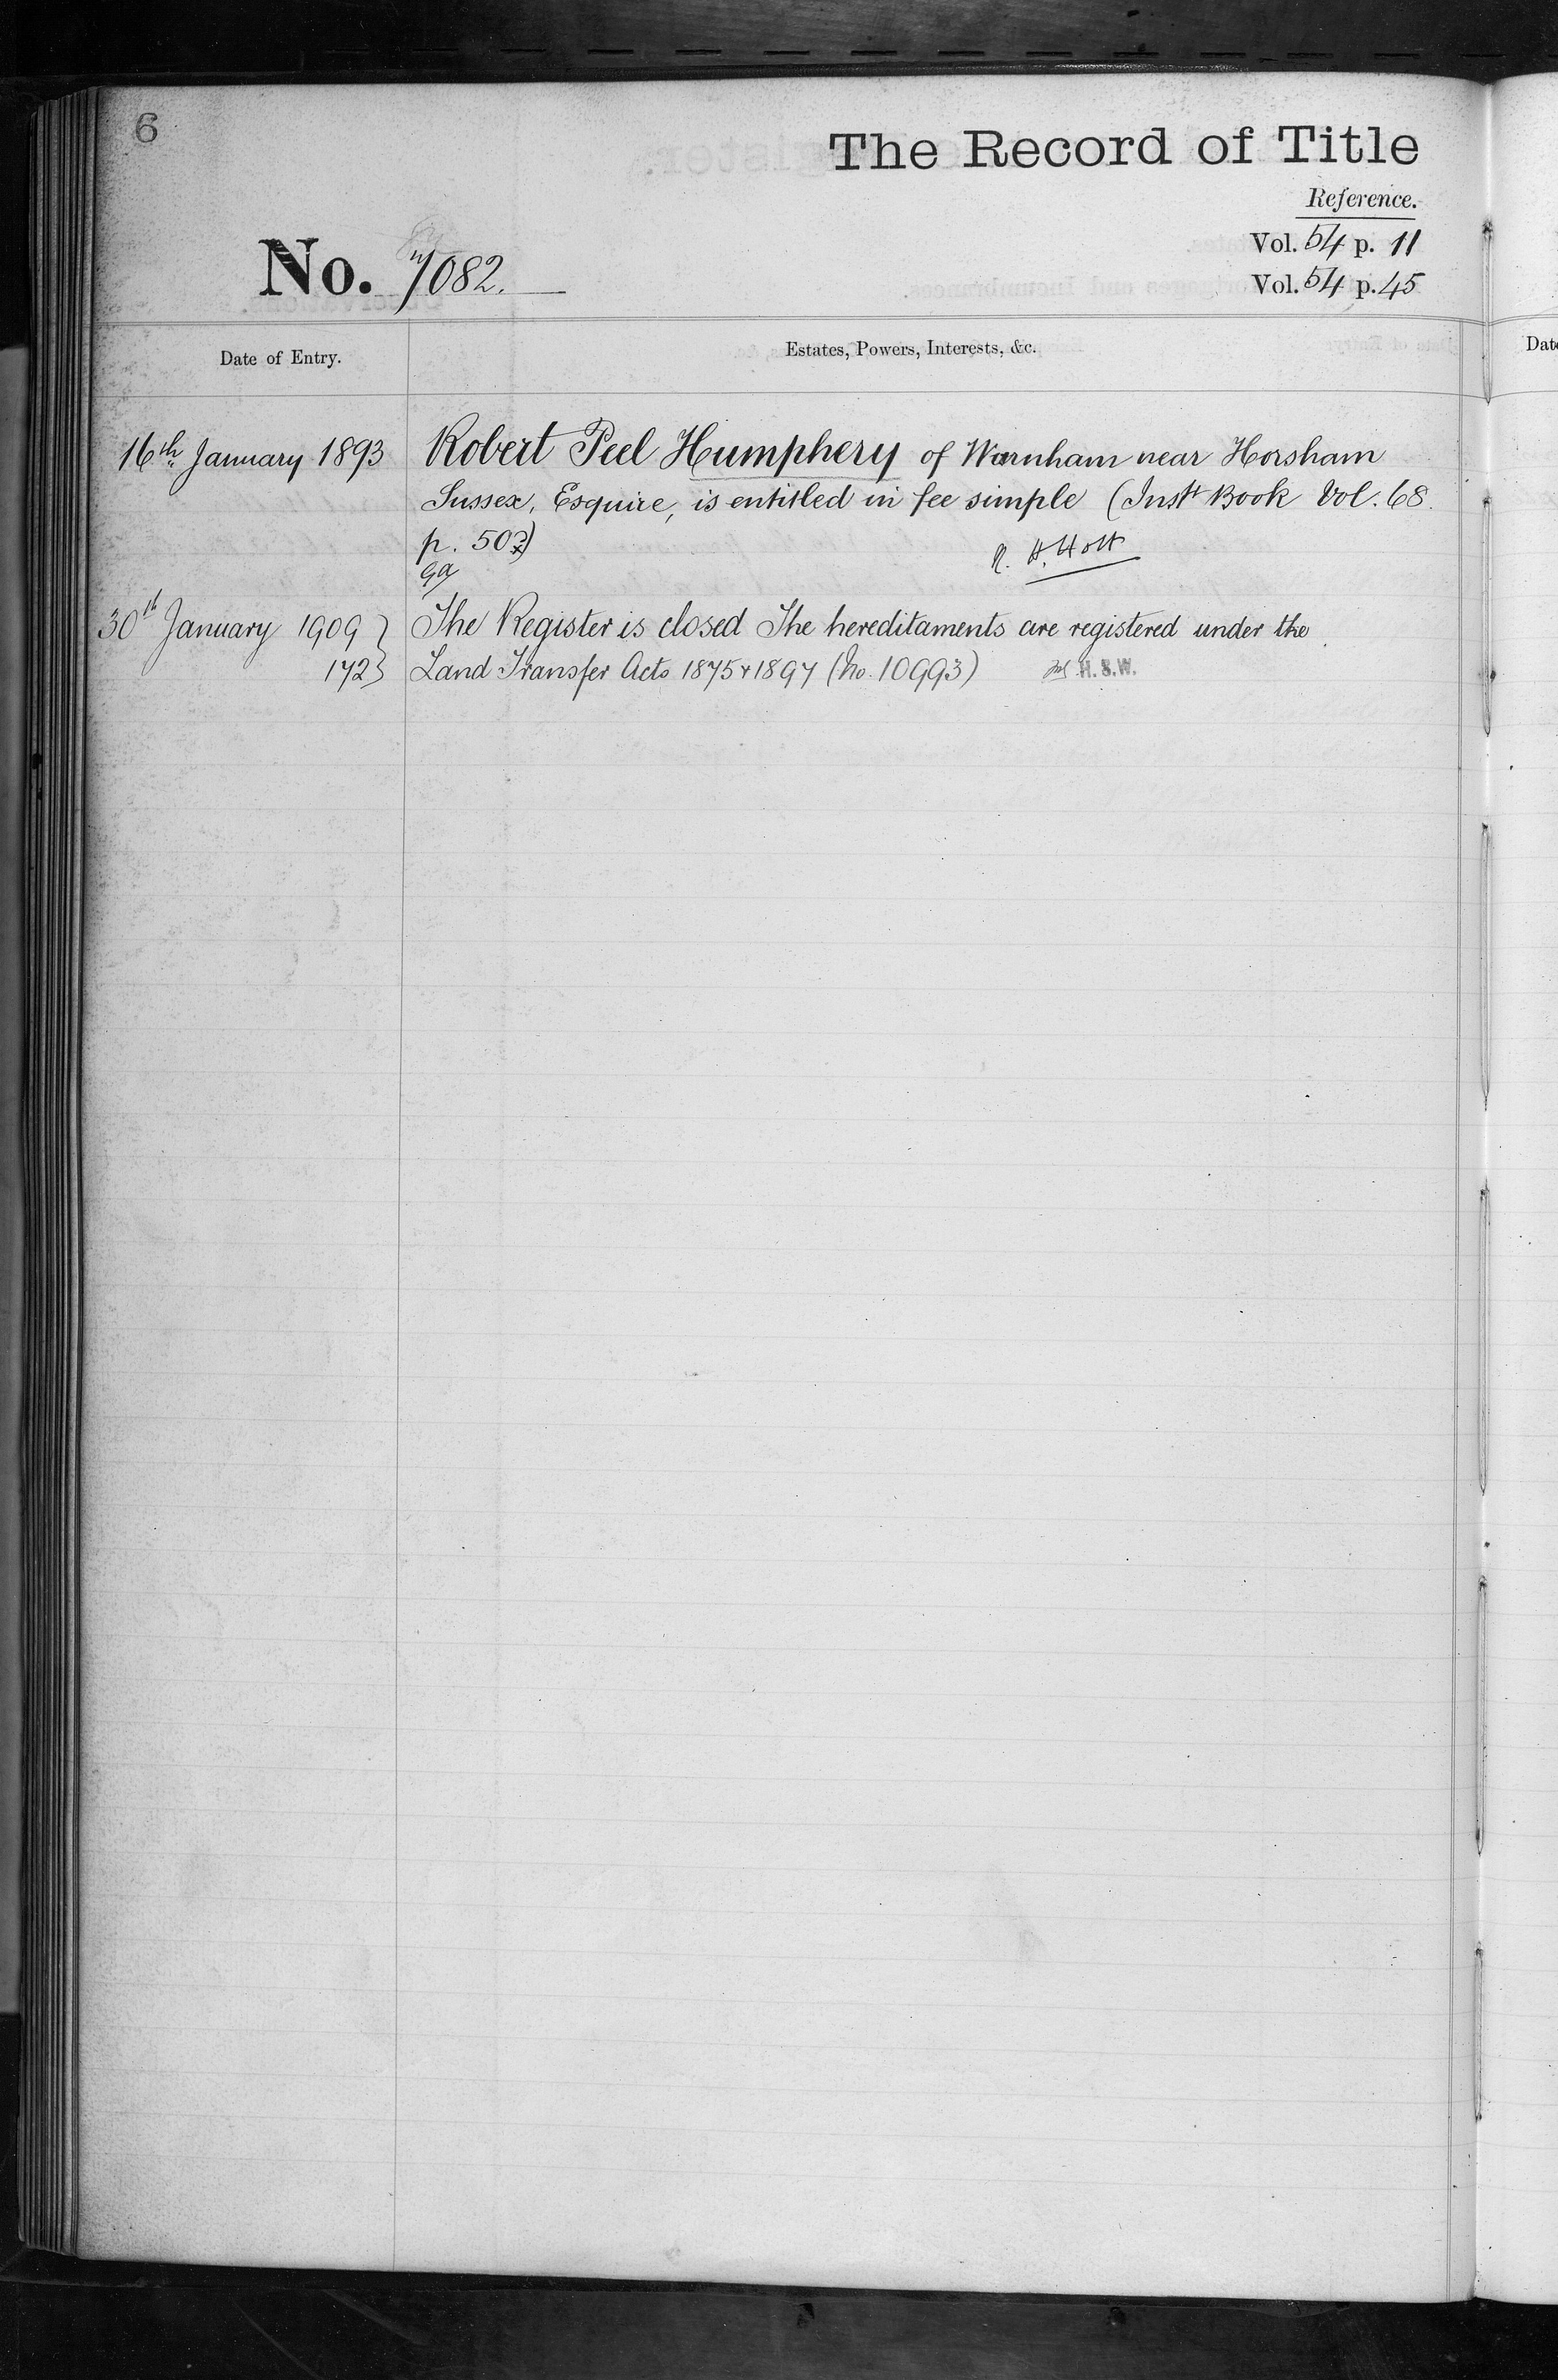 6
The Record of Title
Reference.
Vol. 54 p. 11
No. 7082.
Vol. 54 p. 45
Date of Entry.
Estates, Powers, Interests, &c.
16th January 1893
Robert Peel Humphery of Warnham near Horsham
Sussex, Esquire, is entitled in fee simple (Instt Book Vol. 68.
p. 502)
R. H. Holt
30th January 1909
The Register is closed The hereditaments are registered under the
172
Land Transfer Acts 1875 & 1897 (No. 10993)
H. S. W.
Date